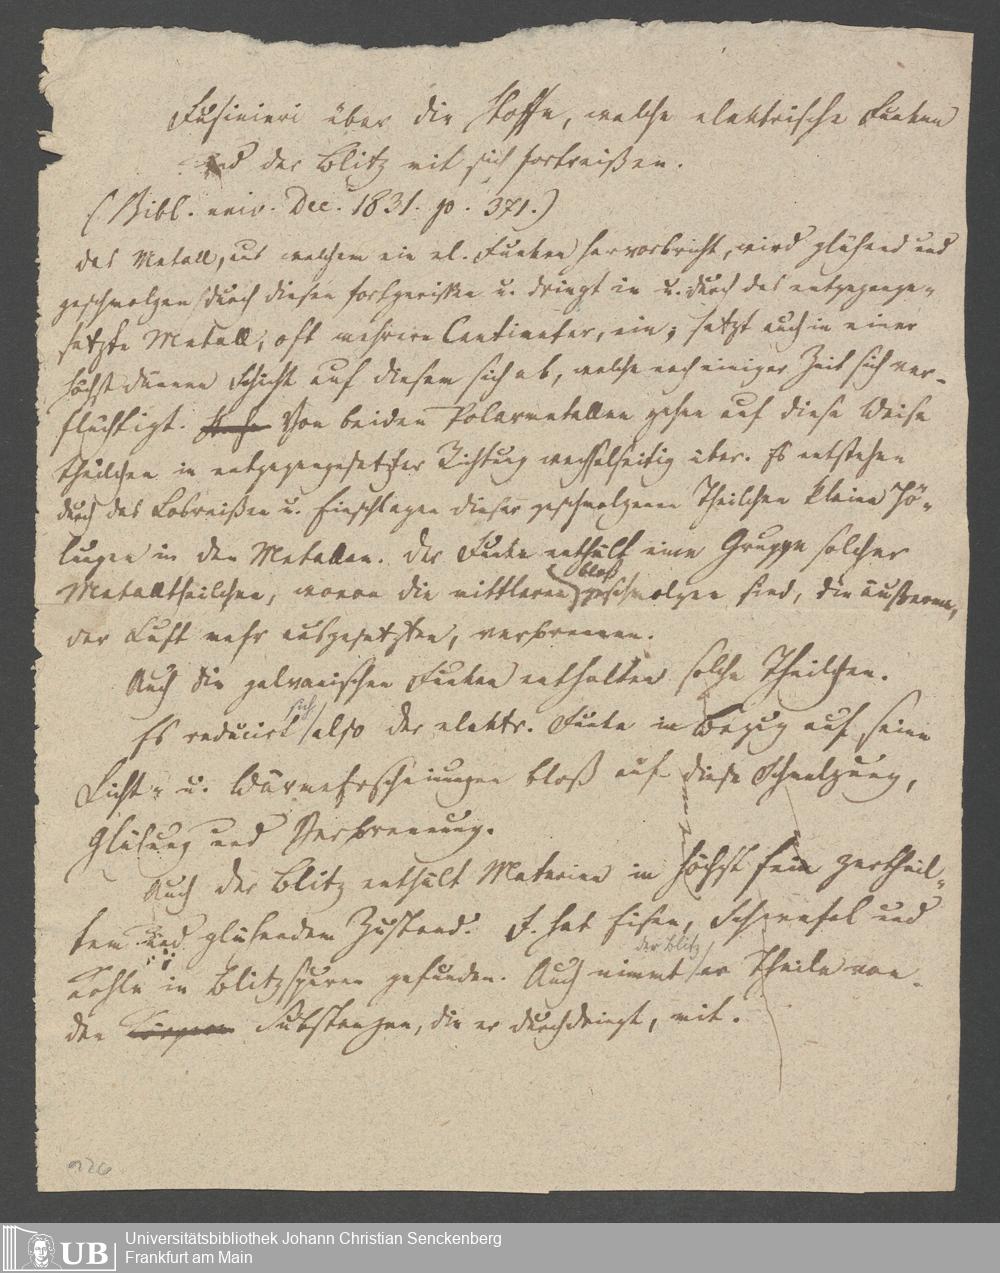 Fusinieri über die Stoffe, welche elektrische Funken
und der Blitz mit sich fortreißen.
(Bibl. univ. Dec. 1831. p. 371.)
Das Metall, aus welchem ein el. Funken hervorbricht, wird glühend und
geschmolzen durch diesen fortgerissen u. dringt in u. durch das entgegenge-
setzte Metall, oft mehrere Centimeter, ein; setzt auch in einer
höchst dünnen Schicht auf diesem sich ab, welche nach einiger Zeit sich ver-
flüchtigt. Von beiden Polarmetallen gehen auf diese Weise
Theilchen in entgegengesetzter Richtung wechselseitig über. Es entstehen
durch das Losreißen u. Einschlagen dieser geschmolzenen Theilchen kleine Hö-
lungen in den Metallen. Der Funke enthält eine Gruppe solcher
Metalltheilchen, wovon die mittleren bloß geschmolzen sind, die äußeren,
der Luft mehr ausgesetzten, verbrennen.
Auch die galvanischen Funken enthalten solche Theilchen.
Es reducirt sich also der elektr. Funke in Bezug auf seine
Licht- u. Wärmeerscheinungen bloß auf diese Schmelzung,
Glühung und Verbrennung.
Auch der Blitz enthält Materien in höchst fein zertheil-
tem und glühendem Zustand. F. hat Eisen, Schwefel und
Kohle in Blitzspuren gefunden. Auch nimmt der Blitz er Theile von
den Körpern Substanzen, die er durchdringt, mit.
226
UB
Universitätsbibliothek Johann Christian Senckenberg
Frankfurt am Main